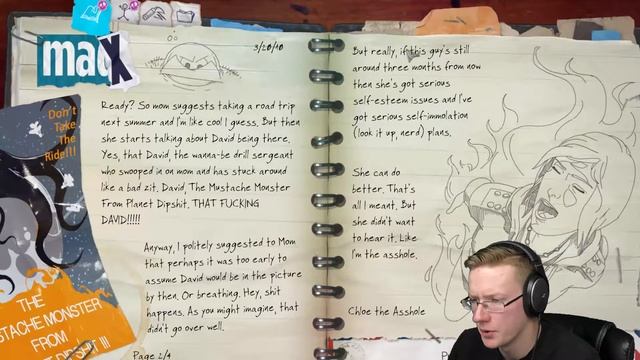 max
3/20/10
Don't
Take
The
Ride!!!
Ready? So mom suggests taking a road trip
next summer and I'm like cool I guess. But then
she starts talking about David being there.
Yes, that David, the wanna-be drill sergeant
who swooped in on mom and has stuck around
like a bad zit. David, The Mustache Monster
From Planet Dipshit. THAT FUCKING
DAVID!!!!!
Anyway, I politely suggested to Mom
that perhaps it was too early to
assume David would be in the picture
by then. Or breathing. Hey, shit
happens. As you might imagine, that
didn't go over well.
THE
STACHE MONSTER
FROM
Page
But really, if this guy's still
around three months from now
then she's got serious
self-esteem issues and I've
got serious self-immolation
(look it up, nerd) plans.
She can do
better. That's
all I meant. But
she didn't want
to hear it. Like
I'm the asshole.
Chloe the Asshole